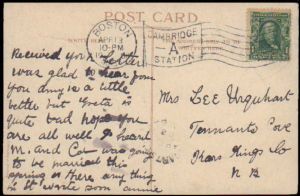 POST CARD
BOSTON
APR 13
10-PM
CAMBRIDGE
A
STATION
Received your letter
was glad to hear from
you Amy is a little
better but Greta is
quite bad hope you
are all well I heard
M. and Co was going
to be married this
spring is there any thing
if it write soon Annie
Mrs LEE Urquhart
Tennants Cove
Kings Co
N B